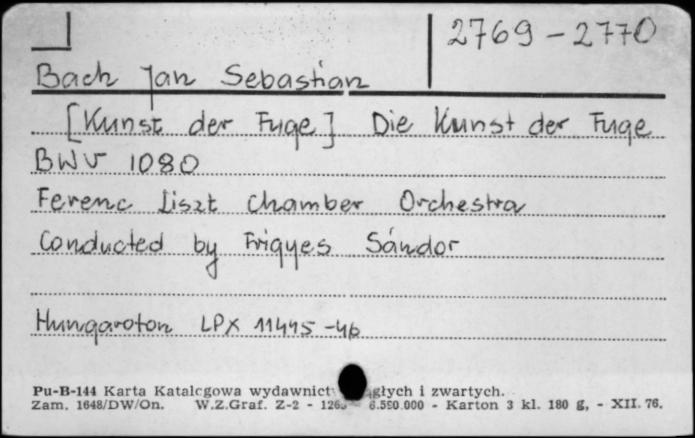 2769-2770
Bach Jan Sebastian
[Kunst der Fuge] Die Kunst der Fuge
BWV 1080
Ferenc Liszt Chamber Orchestra
Conducted by Frigyes Sándor
Hungaroton LPX 11445-46
Pu-B-144 Karta Katalogowa wydawnict głych i zwartych.
Zam. 1648/DW/On. W.Z.Graf. Z-2 - 126 6.550.000 - Karton 3 kl. 180 g, - XII. 76.